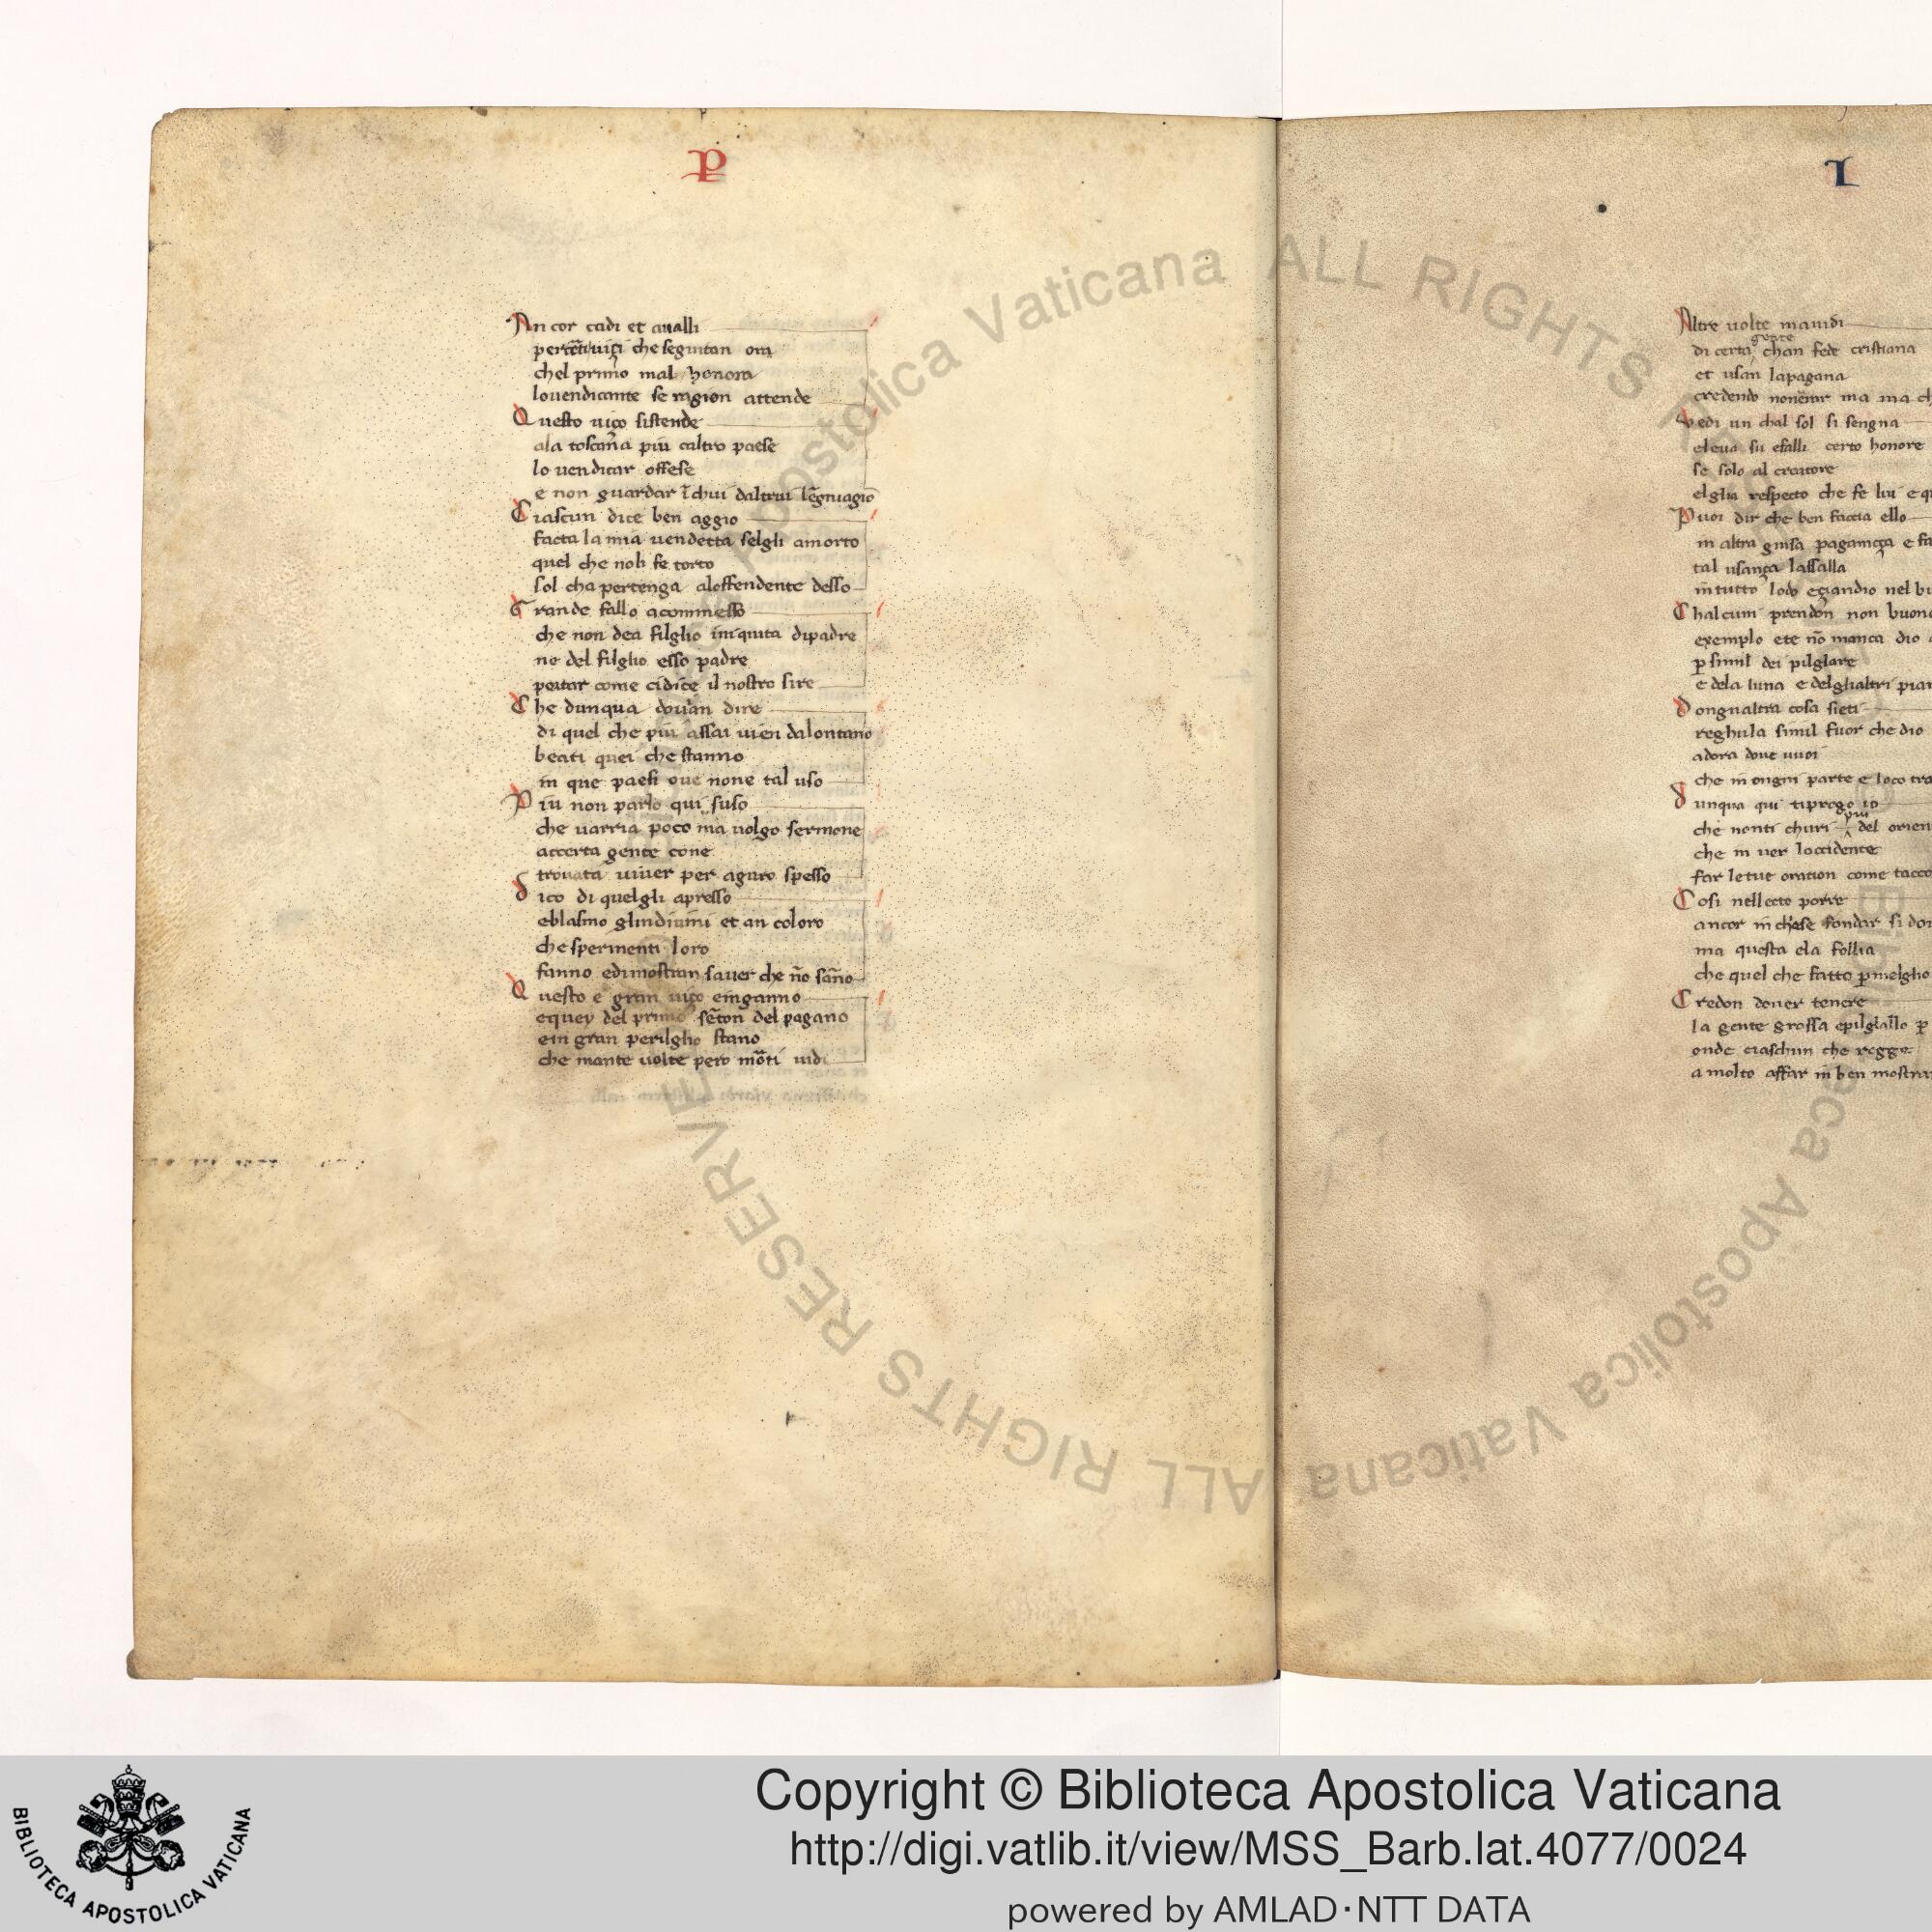 P
An cor cadi et aualli
che segintan ora
chel primo mal honora
louendicante se ragion attende
Questo uiço sistende
ala toscana piu caltro paese
lo uendicar offese
e non guardar ĩ chui daltrui lẽgnagio
Ciascun dice ben aggio
facta la mia uendetta selgli amorto
quel che noli fe torto
sol cha pertenga aloffendente desso
Grande fallo acommesso
che non dea filglio iniquita dipadre
ne del filglio esso padre
portar come cidice il nostro sire
Che dunqua douan dire
di quel che piu assai uien dalontano
beati quei che stanno
in que paesi oue none tal uso
Piu non parlo qui suso
che uarria poco ma uolgo sermone
accerta gente cone
trouata uiuer per aguro spesso
dico di quelgli apresso
eblasmo glindiuini et an coloro
che sperimenti loro
fanno edimostran sauer che nõ sãno
Questo e gran uiço einganno
equey del primo sẽton del pagano
ein gran perilglio stano
che mante uolte pero mõti uidi
I
Altre uolte mauidi
di certa gente chan fede cristiana
et usan lapagana
credendo ma ma
Vedi un chal sol si sengna
eleua su efalli certo honore
se solo al creatore
elglia respecto che fe lui e
Puoi dir che ben faccia ello
in altra guisa paganiça e
tal usança lassalla
in tutto lodo egiandio nel
Chalcuni prendon non
exemplo ete nõ manca dio
p simil dei pilglare
e dela luna e delglialtri
dongnaltra cosa sieti
reghula simil fuor che dio
adora doue uuoi
che in ongni parte e loco
dunqua qui tiprego io
che nonti churi piu del
che in uer loccidente
far letue oration come
Cosi nellecto porre
ancor in chiese fondar si
ma questa ela follia
che quel che fatto pmelglio
Credon douer tenere
la gente grossa epilgiallo p
onde ciaschun che regge
a molto affar in ben
ALL RIGHTS RESERVE
Apostolica Vaticana
BIBLIOTECA APOSTOLICA VATICANA
Copyright © Biblioteca Apostolica Vaticana
http://digi.vatlib.it/view/MSS_Barb.lat.4077/0024
powered by AMLAD·NTT DATA